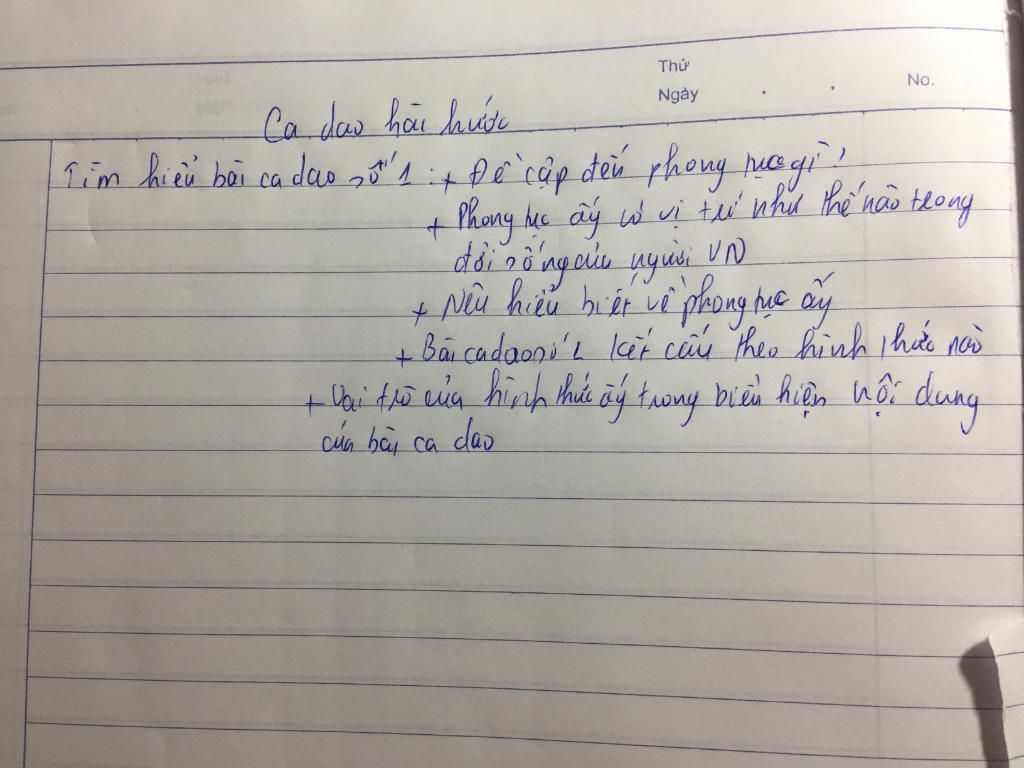 Thứ
Ngày . .
No.
Ca dao hài hước
Tìm hiểu bài ca dao số 1 : + Đề cập đến phong tục gì ?
+ Phong tục ấy có vị trí như thế nào trong
đời sống của người VN
+ Nêu hiểu biết về phong tục ấy
+ Bài ca dao số 1 kết cấu theo hình thức nào
+ Vai trò của hình thức ấy trong biểu hiện nội dung
của bài ca dao